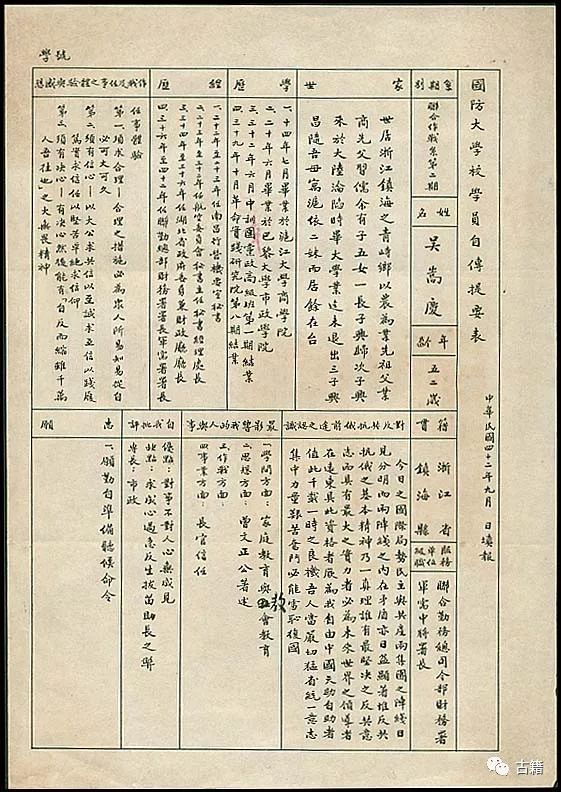 國防大學校學員自傳提要表
中華民國四十二年九月 日填報
學號
期別
聯合作戰系第二期
姓名
吳嵩慶
年齡
五二歲
籍貫
浙江省
鎮海縣
服務單位級職
聯合勤務總司令部財務署
軍需中將署長
家世
世居浙江鎮海之青峙鄉以農為業先祖父業
商先父習儒余有子五女一長子興
來於大陸淪陷時畢大學業迄未退出三子興
昌隨吾母寓滬依二妹而居餘在台
學歷
一、十四年七月畢業於滬江大學商學院
二、二十年六月畢業於巴黎大學市政學院
三、三十二年六月中訓團黨政高級班第一期結業
四、三十九年十月革命實踐研究院第八期結業
經歷
一、二十二年至二十三年任南昌行營機要室秘書
二、二十三年至二十六年任航空委員會秘書主任秘書經理處長
三、二十七年至三十六年任湖北省政府委員兼財政廳廳長
四、三十六年至四十二年任聯勤總部財務署署長軍需署署長
作戰及任事之體驗與感想
任事體驗
第一須求合理—合理之措施必為眾人所易知易從自
必可大可久
第二須有信心—以大公求共信以至誠求互信以踐履
篤實求信任以堅苦卓絕求信仰
第三須有決心—有決心然後能有「自反而縮雖千萬
人吾往也」之大無畏精神
對反共抗俄前途之認識
今日之國際局勢民主與共產兩集團之陣綫日
見分明而兩陣綫之內在矛盾亦日益顯著惟反共
抗俄之基本精神乃一真理誰有最堅決之反共意
志而具有最大之實力者必為未來世界之領導者
在遠東具此資格者厥為我自由中國天助自助者
值此千載一時之良機吾人當嚴切猛省統一意志
集中力量艱苦奮鬥必能雪恥復國
最影響我的人與事
一、學問方面：家庭教育與教會教育
二、思想方面：曾文正公著述
三、作戰方面：
四、事業方面：長官信任
自我批評
優點：對事不對人心無成見
缺點：求成心過急反生拔苗助長之弊
專長：市政
志願
一、願勤自準備聽候命令
古籍